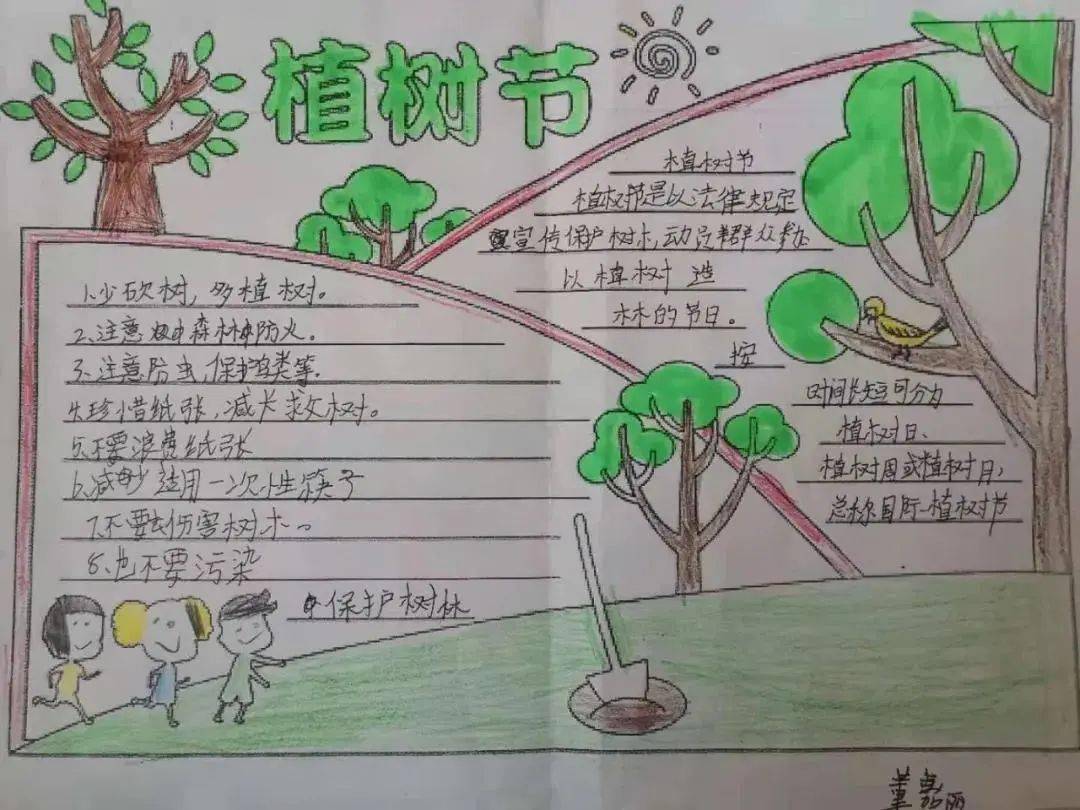 植树节
1.少砍树，多植树。
2.注意森林防火。
3.注意防虫,保护鸟类等.
4.珍惜纸张,减长救树。
5.不要浪费纸张
6.减少适用一次性筷子
7.不要去伤害树木。
8.也不要污染
保护树林
植树节
植树节是以法律规定
宣传保护树木,动员群众参加
以植树造
林的节日。
按
时间长短可分为
植树日、
植树周或植树月,
总称国际植树节
董嘉丽